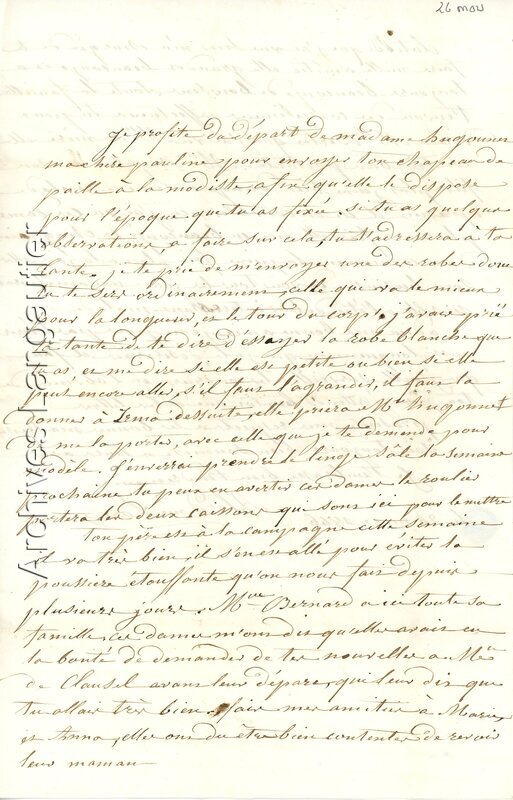 26 mou
Je profite du départ de madame hugounet
ma chère pauline pour envoyer ton chapeau de
paille à la modiste, afin qu'elle le dispose
pour l'époque que tu as fixée. si tu as quelque
observations, a faire sur cela, tu t'adressera à ta
tante. je te prie de m'envoyer une des robes dont
tu te sers ordinairement, celle qui va le mieux
pour la longueur, et le tour du corps. j'avais prié
ta tante de te dire d'essayer la robe blanche que
tu as, et me dire si elle est petite ou bien si elle
peut encore aller, s'il faut l'agrandir, il faut la
donner à Irma dessuite, elle priera Me hugounet
de me la porter, avec celle que je te demande pour
modèle. J'enverrai prendre le linge sale la semaine
prochaine tu peux en avertir ces dames le roulier
portera les deux caissons qui sont ici pour le mettre
ton père est à la campagne cette semaine
il va très bien, il s'en est allé pour éviter la
poussiere étouffante qu'on nous fait depuis
plusieurs jours. Mme Bernard a ici toute sa
famille, ces dames m'ont dit qu'elles avais eu
la bonté de demander de tes nouvelles a Me
de Clausel avant leur départ, qui leur dit que
tu allais très bien. fais mes amitiés à Marie,
et Anna, elles ont du être bien contentes de revoir
leur maman
Archives Langautier